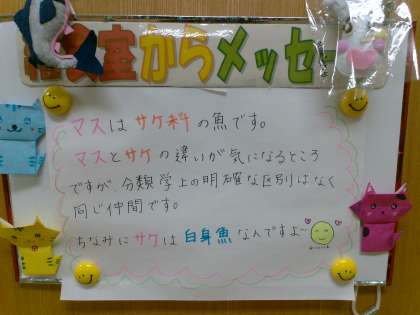 室からメッセー
マスはサケ科の魚です。
マスとサケの違いが気になるところ
ですが、分類学上の明確な区別はなく
同じ仲間です。
ちなみにサケは白身魚なんですよ〜